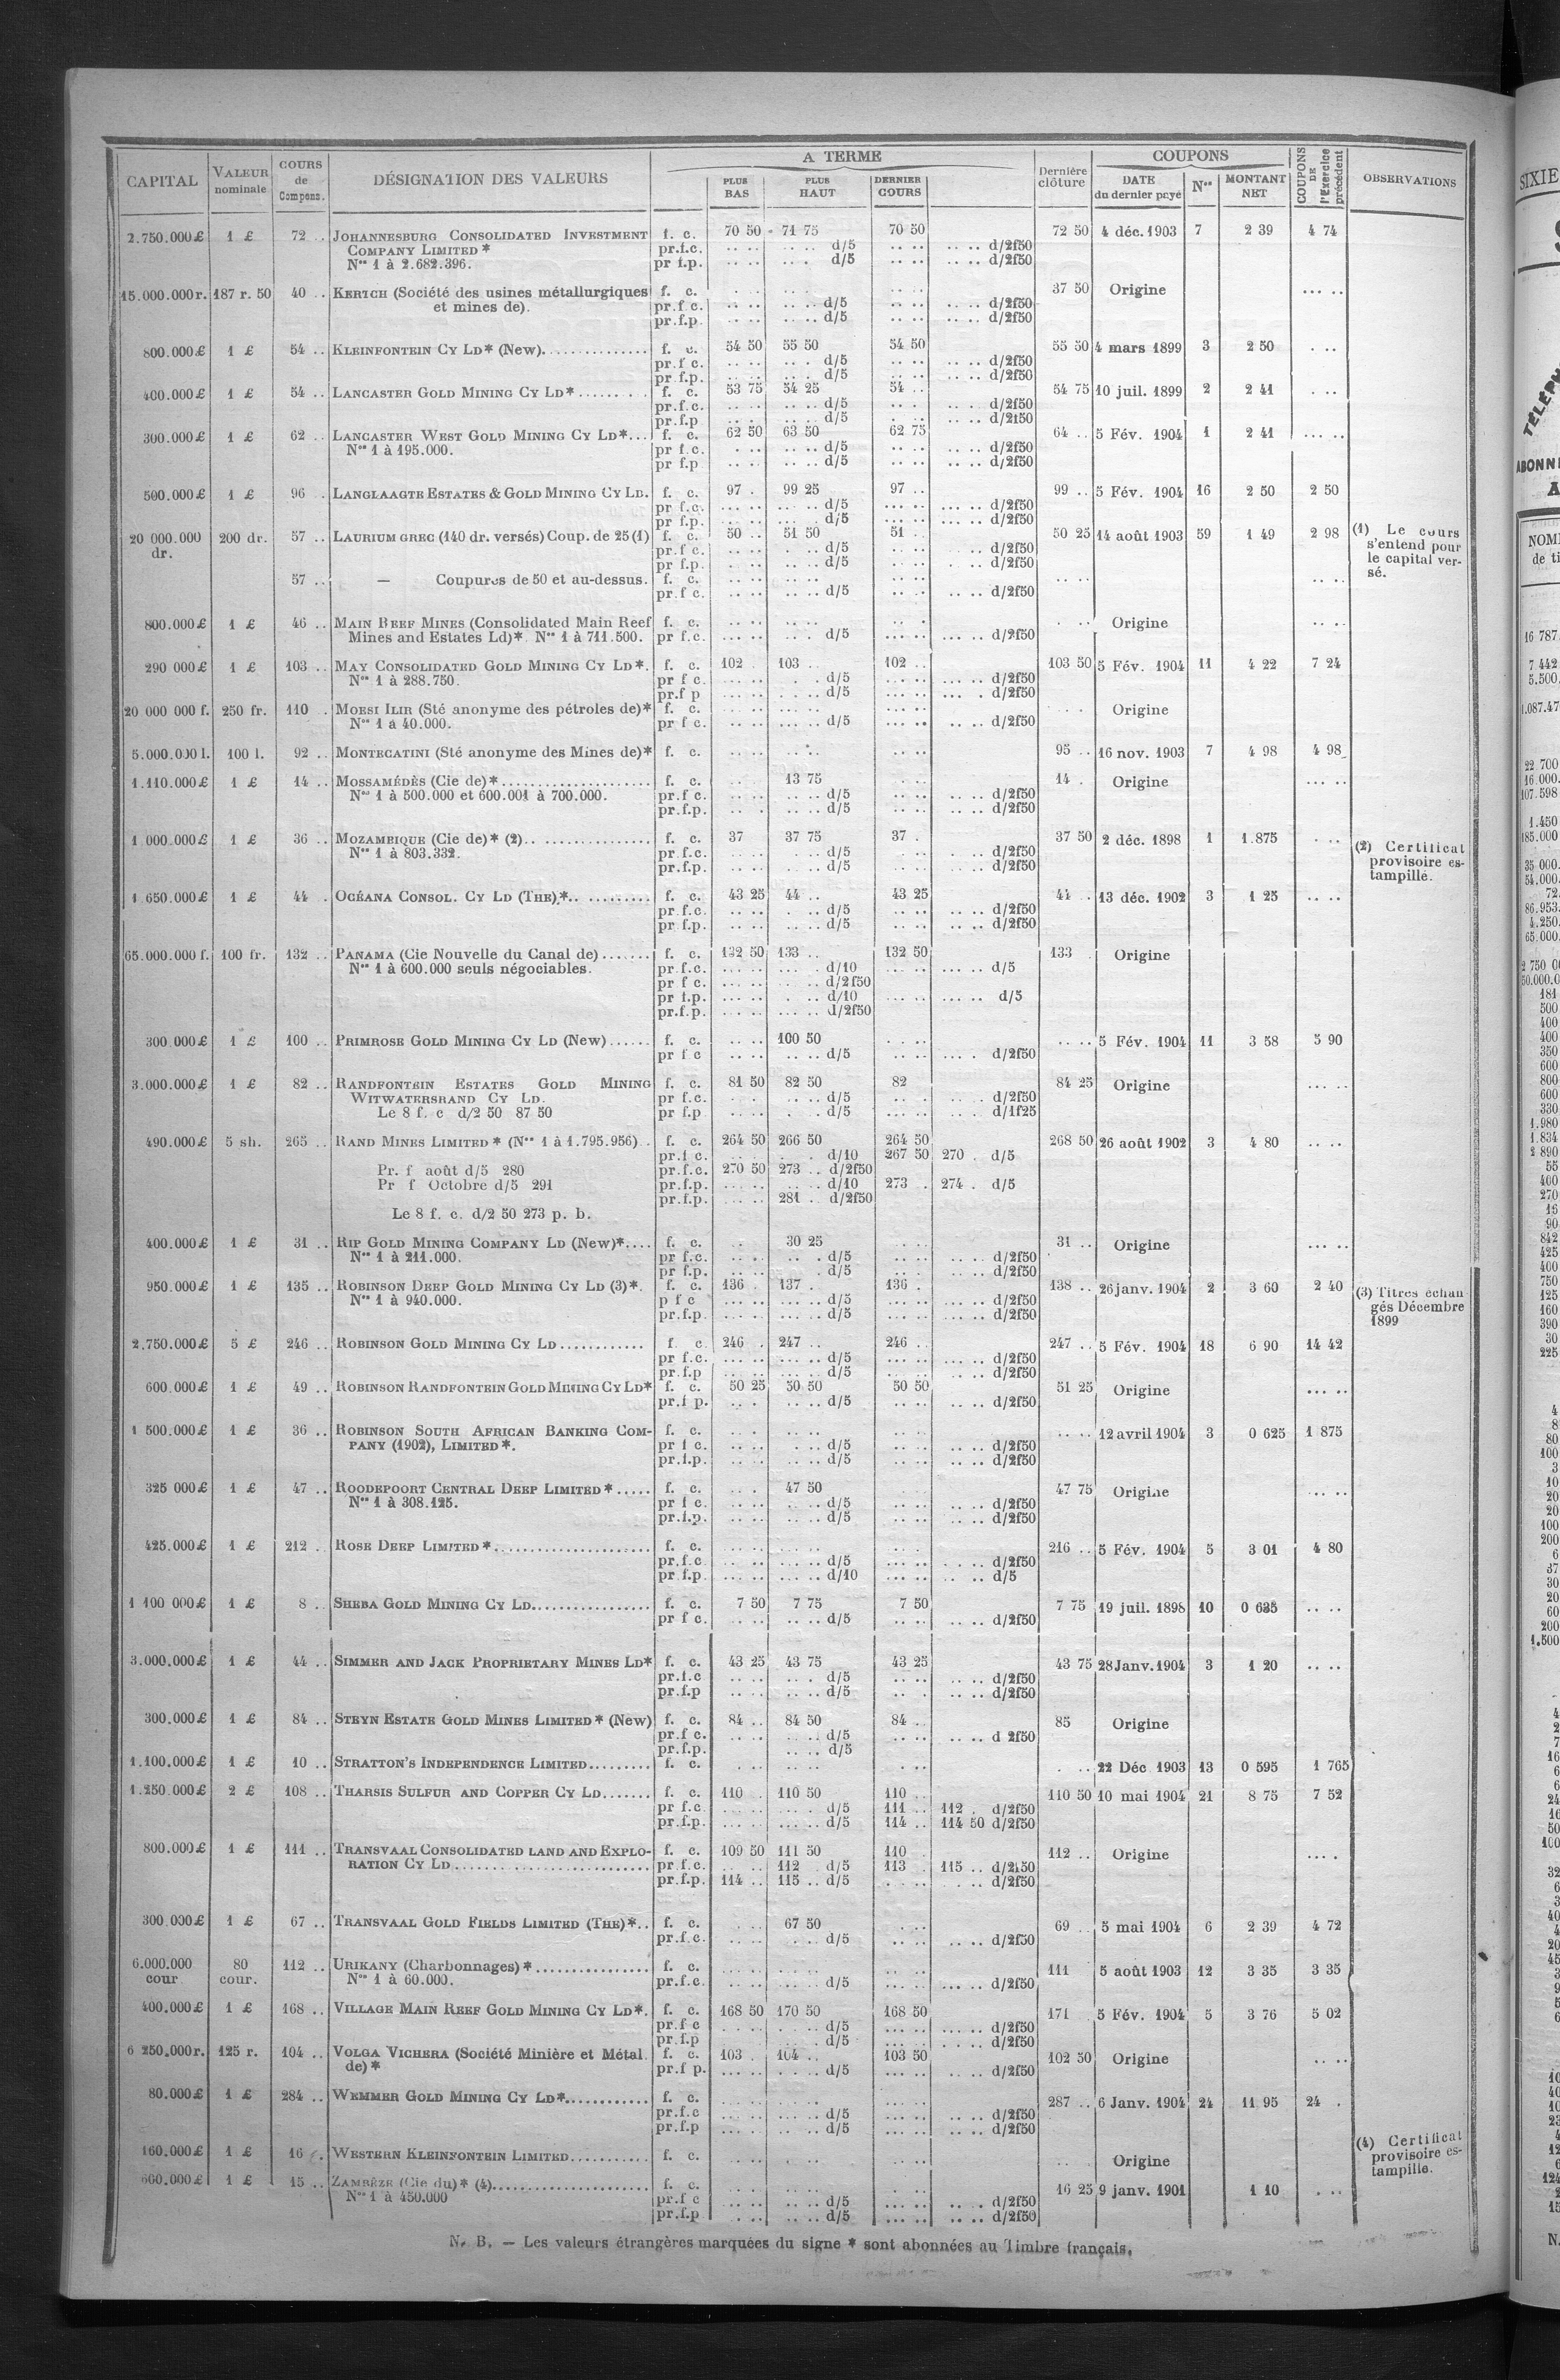 CAPITAL | VALEUR nominale | COURS de Compens. | DÉSIGNATION DES VALEURS | A TERME | PLUS BAS | PLUS HAUT | DERNIER COURS | Dernière clôture | COUPONS | DATE du dernier payé | Nos | MONTANT NET | COUPONS DE l'Exercice précédent | OBSERVATIONS
2.750.000 £ 1 £ 72 .. JOHANNESBURG CONSOLIDATED INVESTMENT f. c. 70 50 71 75 70 50 72 50 4 déc. 1903 7 2 39 4 74
COMPANY LIMITED * pr.f.c. d/5 d/2f50
Nos 1 à 2.682.396. pr f.p. d/5 d/2f50
15.000.000 r. 187 r. 50 40 .. KERTCH (Société des usines métallurgiques f. c. 37 50 Origine
et mines de). pr.f c. d/5 d/2f50
pr.f.p. d/5 d/2f50
800.000 £ 1 £ 54 .. KLEINFONTEIN CY LD* (New) f. c. 54 50 55 50 54 50 55 50 4 mars 1899 3 2 50
pr.f c. d/5 d/2f50
pr.f.p. d/5 d/2f50
400.000 £ 1 £ 54 .. LANCASTER GOLD MINING CY LD* f. c. 53 75 54 25 54 .. 54 75 10 juil. 1899 2 2 41
pr.f.c. d/5 d/2f50
pr.f.p d/5 d/2f50
300.000 £ 1 £ 62 .. LANCASTER WEST GOLD MINING CY LD* f. c. 62 50 63 50 62 75 64 .. 5 Fév. 1904 1 2 41
Nos 1 à 195.000. pr f.c. d/5 d/2f50
pr f.p d/5 d/2f50
500.000 £ 1 £ 96 .. LANGLAAGTE ESTATES & GOLD MINING CY LD. f. c. 97 . 99 25 97 .. 99 .. 5 Fév. 1904 16 2 50 2 50
pr f.c. d/5 d/2f50
pr f.p. d/5 d/2f50
20 000.000 dr. 200 dr. 57 .. LAURIUM GREC (140 dr. versés) Coup. de 25 (1) f. c. 50 .. 51 50 51 .. 50 25 14 août 1903 59 1 49 2 98 (1) Le cours s'entend pour le capital versé.
pr.f c. d/5 d/2f50
pr f.p. d/5 d/2f50
57 .. — Coupures de 50 et au-dessus. f. c.
pr.f c. d/5 d/2f50
800.000 £ 1 £ 46 .. MAIN REEF MINES (Consolidated Main Reef f. c. Origine
Mines and Estates Ld)* Nos 1 à 711.500. pr f.c. d/5 d/2f50
290 000 £ 1 £ 103 .. MAY CONSOLIDATED GOLD MINING CY LD*. f. c. 102 . 103 .. 102 .. 103 50 5 Fév. 1904 11 4 22 7 24
Nos 1 à 288.750. pr f c. d/5 d/2f50
pr.f p d/5 d/2f50
20 000 000 f. 250 fr. 110 . MOESI ILIR (Sté anonyme des pétroles de)* f. c. Origine
Nos 1 à 40.000. pr f c. d/5 d/2f50
5.000.000 l. 100 l. 92 .. MONTECATINI (Sté anonyme des Mines de)* f. c. 95 .. 16 nov. 1903 7 4 98 4 98
1.110.000 £ 1 £ 14 .. MOSSAMÉDÈS (Cie de)* f. c. 13 75 14 . Origine
Nos 1 à 500.000 et 600.001 à 700.000. pr.f c. d/5 d/2f50
pr.f.p. d/5 d/2f50
1 000.000 £ 1 £ 36 .. MOZAMBIQUE (Cie de)* (2) f. c. 37 37 75 37 . 37 50 2 déc. 1898 1 1.875 (2) Certificat provisoire estampillé.
Nos 1 à 803.332. pr.f.c. d/5 d/2f50
pr.f.p. d/5 d/2f50
1 650.000 £ 1 £ 44 . OCÉANA CONSOL. CY LD (THE)* f. c. 43 25 44 .. 43 25 44 . 13 déc. 1902 3 1 25
pr.f.c. d/5 d/2f50
pr f.p. d/5 d/2f50
65.000.000 f. 100 fr. 132 .. PANAMA (Cie Nouvelle du Canal de) f. c. 132 50 133 .. 132 50 133 Origine
Nos 1 à 600.000 seuls négociables. pr.f.c. d/10 d/5
pr f c. d/2f50
pr f.p. d/10 d/5
pr.f.p. d/2f50
300 000 £ 1 £ 100 .. PRIMROSE GOLD MINING CY LD (New) f. c. 100 50 5 Fév. 1904 11 3 58 5 90
pr f c d/5 d/2f50
3.000.000 £ 1 £ 82 .. RANDFONTEIN ESTATES GOLD MINING f. c. 81 50 82 50 82 84 25 Origine
WITWATERSRAND CY LD. pr f.c. d/5 d/2f50
Le 8 f. c d/2 50 87 50 pr f.p d/5 d/1f25
490.000 £ 5 sh. 265 .. RAND MINES LIMITED * (Nos 1 à 1.795.956) f. c. 264 50 266 50 264 50 268 50 26 août 1902 3 4 80
pr.f c. d/10 267 50 270 . d/5
Pr. f août d/5 280 pr.f.c. 270 50 273 .. d/2f50
Pr f Octobre d/5 291 pr.f.p. d/10 273 . 274 . d/5
pr.f.p. 281 . d/2f50
Le 8 f. c. d/2 50 273 p. b.
400.000 £ 1 £ 31 .. RIP GOLD MINING COMPANY LD (New)* f. c. 30 25 31 .. Origine
Nos 1 à 211.000. pr f.c. d/5 d/2f50
pr f.p. d/5 d/2f50
950.000 £ 1 £ 135 .. ROBINSON DEEP GOLD MINING CY LD (3)*. f. c. 136 . 137 . 136 . 138 .. 26 janv. 1904 2 3 60 2 40 (3) Titres échangés Décembre 1899
Nos 1 à 940.000. p f c d/5 d/2f50
pr.f.p. d/5 d/2f50
2.750.000 £ 5 £ 246 .. ROBINSON GOLD MINING CY LD f. c. 246 . 247 .. 246 .. 247 .. 5 Fév. 1904 18 6 90 14 42
pr f.c. d/5 d/2f50
pr.f.p d/5 d/2f50
600.000 £ 1 £ 49 .. ROBINSON RANDFONTEIN GOLD MINING CY LD* f. c. 50 25 50 50 50 50 51 25 Origine
pr.f p. d/5 d/2f50
1 500.000 £ 1 £ 36 .. ROBINSON SOUTH AFRICAN BANKING COM- f. c. 12 avril 1904 3 0 625 1 875
PANY (1902), LIMITED *. pr f c. d/5 d/2f50
pr.f.p. d/5 d/2f50
325 000 £ 1 £ 47 .. ROODEPOORT CENTRAL DEEP LIMITED * f. c. 47 50 47 75 Origine
Nos 1 à 308.125. pr f c. d/5 d/2f50
pr.f.p. d/5 d/2f50
425.000 £ 1 £ 212 .. ROSE DEEP LIMITED * f. c. 216 .. 5 Fév. 1904 5 3 01 4 80
pr.f.c d/5 d/2f50
pr f.p d/10 d/5
1 100 000 £ 1 £ 8 .. SHEBA GOLD MINING CY LD f. c. 7 50 7 75 7 50 7 75 19 juil. 1898 10 0 635
pr f c. d/5 d/2f50
3.000.000 £ 1 £ 44 .. SIMMER AND JACK PROPRIETARY MINES LD* f. c. 43 25 43 75 43 25 43 75 28 Janv. 1904 3 1 20
pr.f.c d/5 d/2f50
pr.f.p d/5 d/2f50
300.000 £ 1 £ 84 .. STEYN ESTATE GOLD MINES LIMITED * (New) f. c. 84 .. 84 50 84 .. 85 Origine
pr.f c. d/5 d 2f50
pr.f.p. d/5
1.100.000 £ 1 £ 10 .. STRATTON'S INDEPENDENCE LIMITED f. c. 22 Déc 1903 13 0 595 1 765
1.250.000 £ 2 £ 108 .. THARSIS SULFUR AND COPPER CY LD f. c. 110 . 110 50 110 .. 110 50 10 mai 1904 21 8 75 7 52
pr f.c. d/5 111 .. 112 . d/2f50
pr.f.p. d/5 114 .. 114 50 d/2f50
800.000 £ 1 £ 111 .. TRANSVAAL CONSOLIDATED LAND AND EXPLO- f. c. 109 50 111 50 110 112 .. Origine
RATION CY LD pr f.c. 112 . d/5 113 . 115 .. d/2f50
pr.f.p. 114 .. 115 .. d/5 d/2f50
300.000 £ 1 £ 67 .. TRANSVAAL GOLD FIELDS LIMITED (THE)* f. c. 67 50 69 .. 5 mai 1904 6 2 39 4 72
pr.f.c. d/5 d/2f50
6.000.000 cour 80 cour. 112 .. URIKANY (Charbonnages)* f. c. 111 5 août 1903 12 3 35 3 35
Nos 1 à 60.000. pr.f.c. d/5 d/2f50
400.000 £ 1 £ 168 .. VILLAGE MAIN REEF GOLD MINING CY LD*. f. c. 168 50 170 50 168 50 171 5 Fév. 1904 5 3 76 5 02
pr.f c d/5 d/2f50
pr.f.p d/5 d/2f50
6 250.000 r. 125 r. 104 .. VOLGA VICHERA (Société Minière et Métal. f. c. 103 . 104 .. 103 50 102 50 Origine
de)* pr.f p. d/5 d/2f50
80.000 £ 1 £ 284 .. WEMMER GOLD MINING CY LD* f. c. 287 .. 6 Janv. 1904 24 11 95 24 .
pr.f.c d/5 d/2f50
pr.f.p d/5 d/2f50
160.000 £ 1 £ 16 . WESTERN KLEINFONTEIN LIMITED f. c. Origine (4) Certificat provisoire estampillé.
600.000 £ 1 £ 15 .. ZAMBÈZE (Cie du)* (4) f. c. 16 25 9 janv. 1901 1 10
Nos 1 à 450.000 pr.f c d/5 d/2f50
pr.f.p d/5 d/2f50
N. B. — Les valeurs étrangères marquées du signe * sont abonnées au Timbre français.